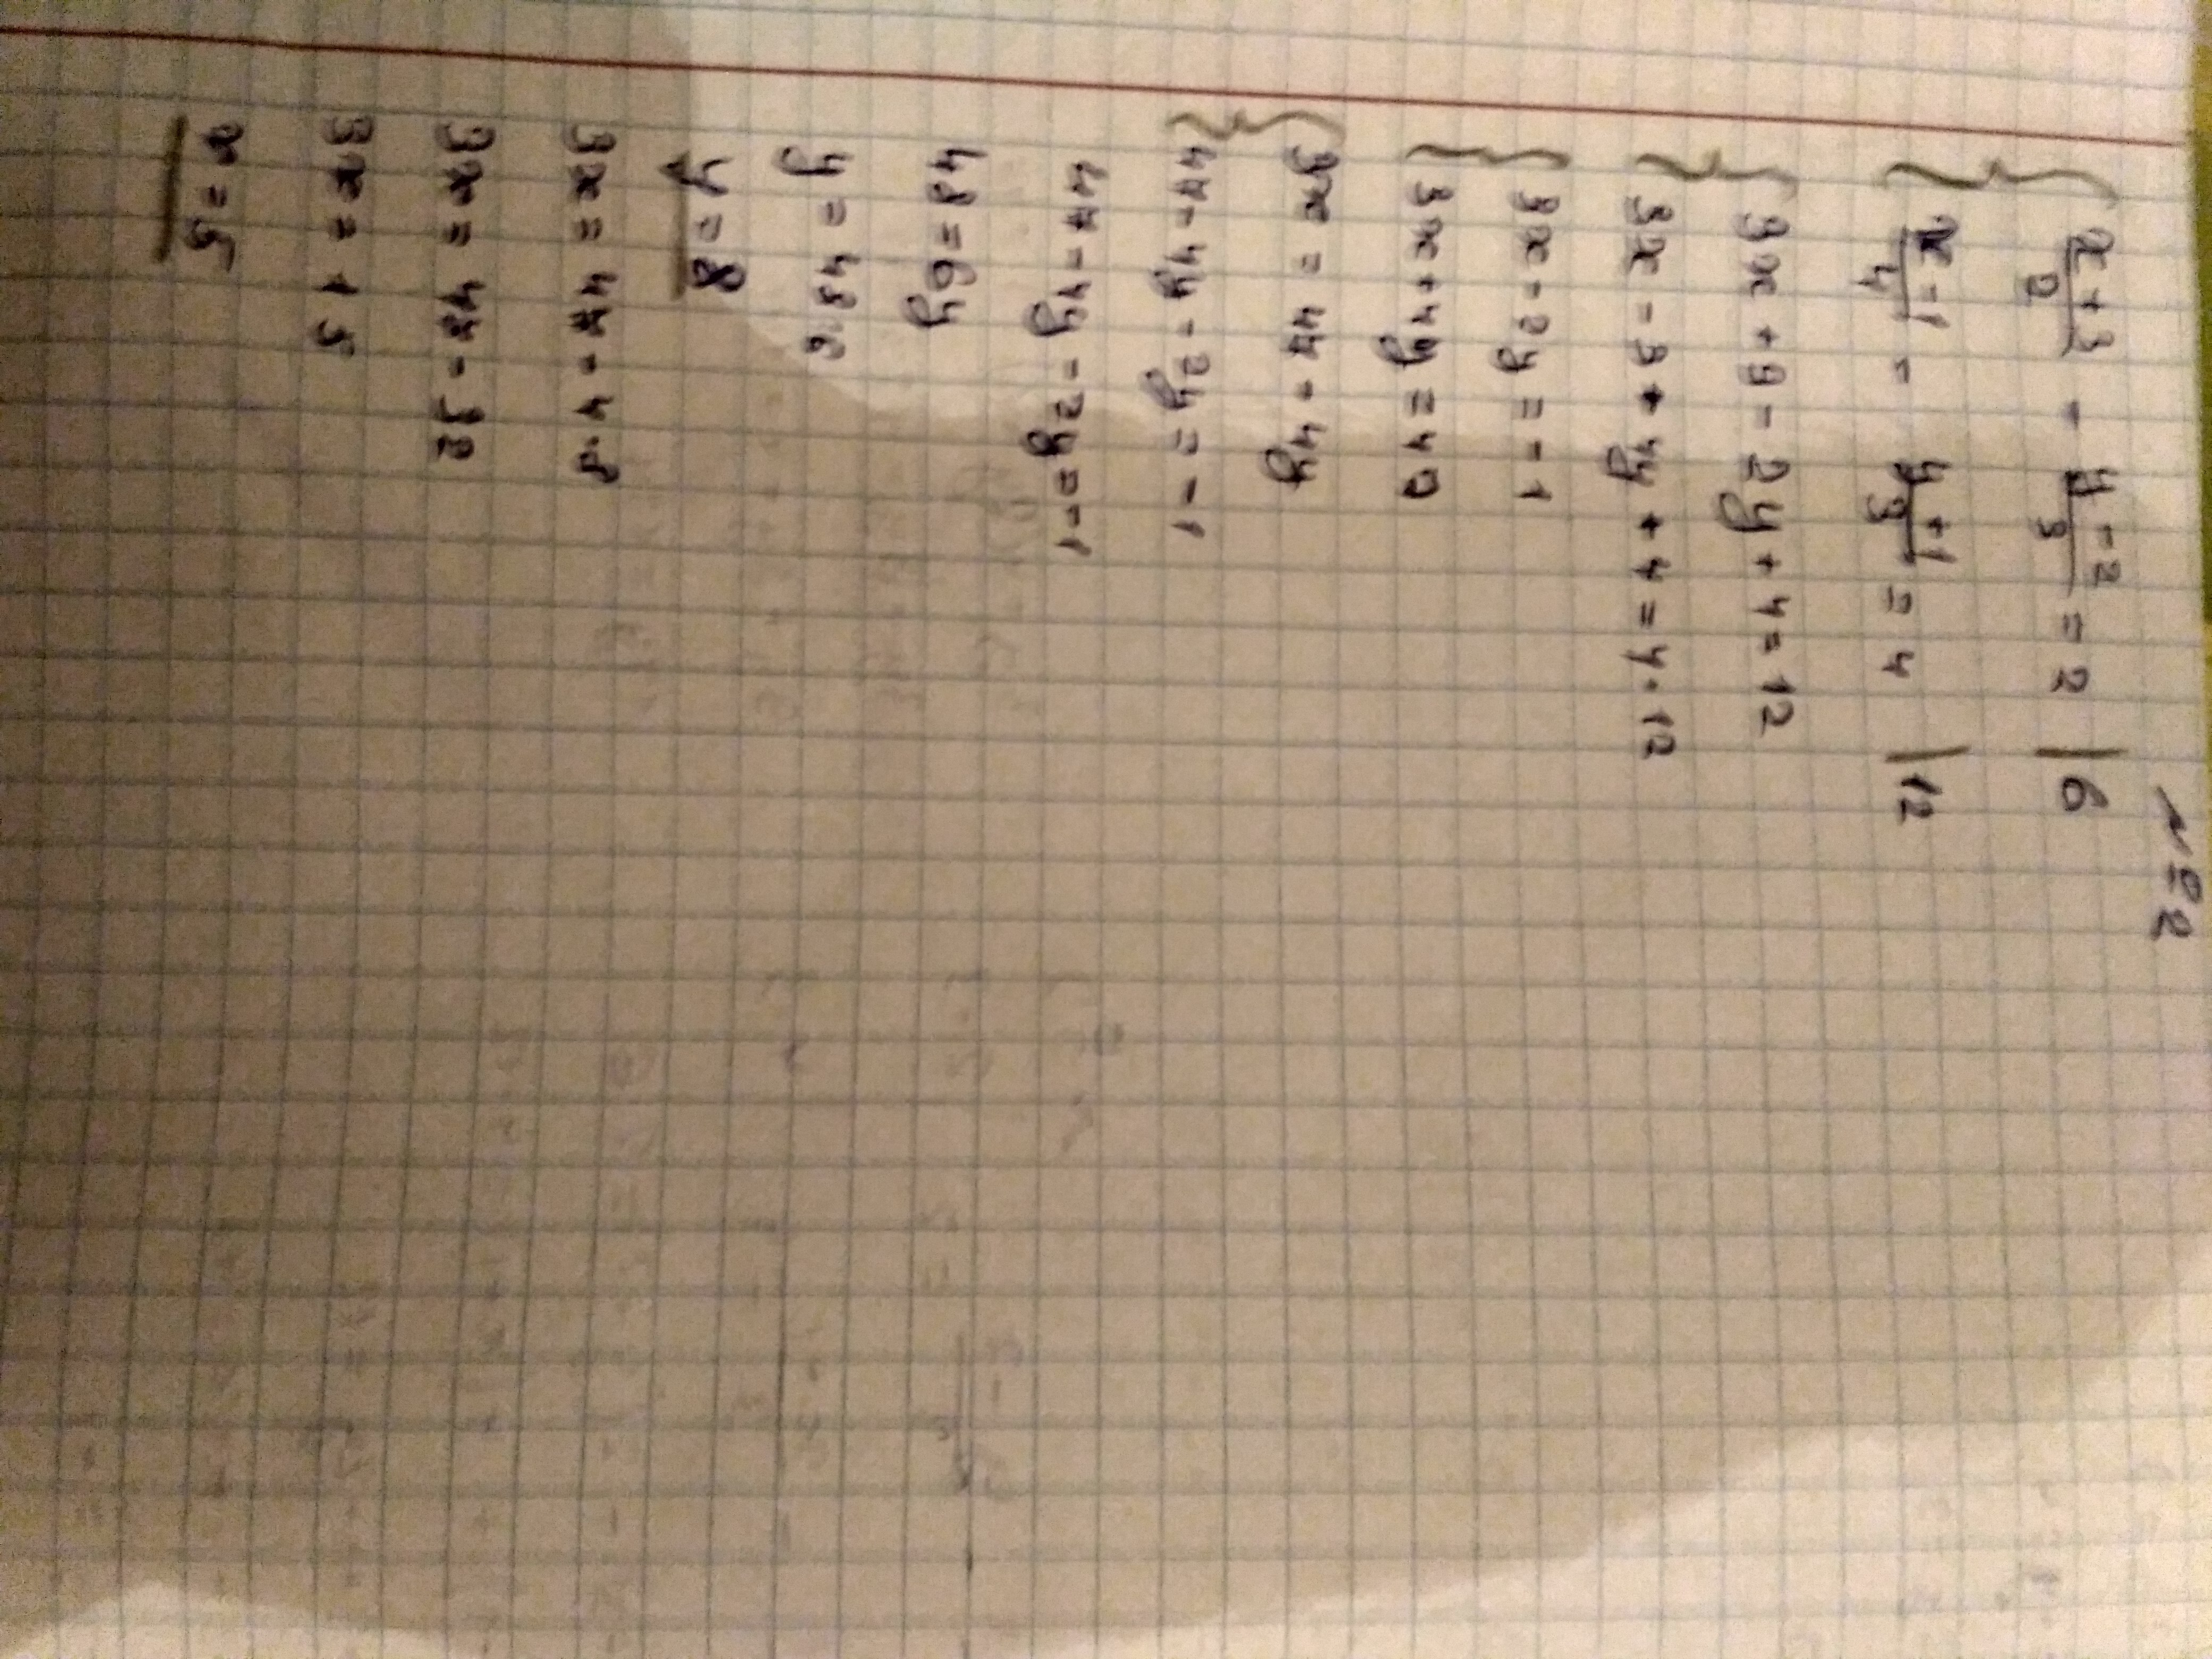 № 2
{ (x+3)/2 - (y-2)/3 = 2 | 6
{ (x-1)/4 - (y+1)/3 = 4 | 12
{ 3x + 9 - 2y + 4 = 12
{ 3x - 3 + 4y + 4 = 4·12
{ 3x - 2y = -1
3x + 4y = 40
{ 3x = 47 - 4y
{ 47 - 4y - 2y = -1
47 - 4y - 2y = -1
48 = 6y
y = 48:6
y = 8
3x = 47 - 4·8
3x = 47 - 32
3x = 15
x = 5